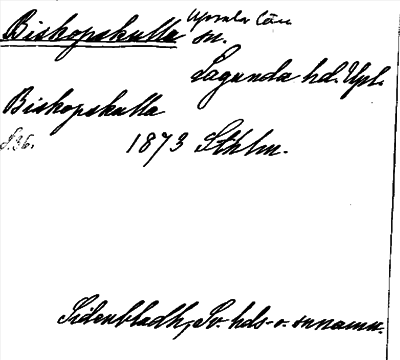 Biskopskulla Upsala län
sn.
Lagunda hd. Upl.
Biskopskulla
S. 36.
1873 Sthlm.
Sidenbladh, Sv. hds- o. snnamn.